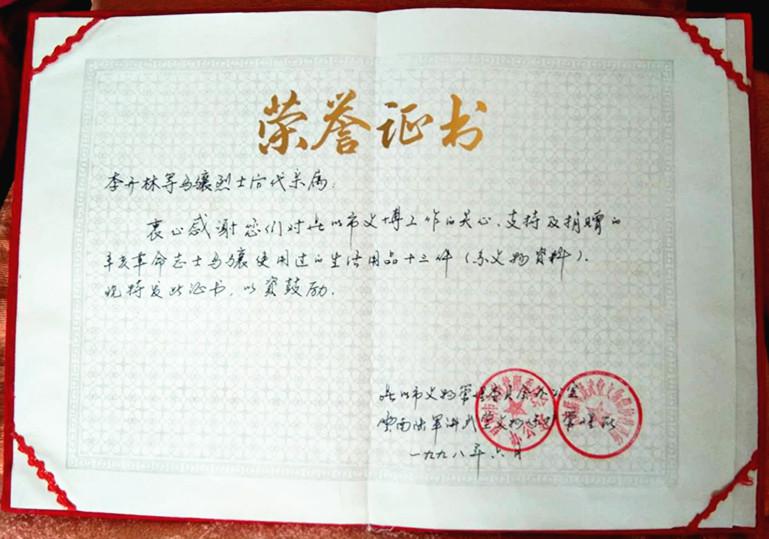 荣誉证书
李开林等马骧烈士后代亲属:
衷心感谢您们对昆明市文博工作的关心、支持及捐赠的
辛亥革命志士马骧使用过的生活用品十三件(系文物资料).
现特发此证书,以资鼓励.
昆明市文物管理委员会办公室
云南陆军讲武堂文物 管理所
一九九八年六月